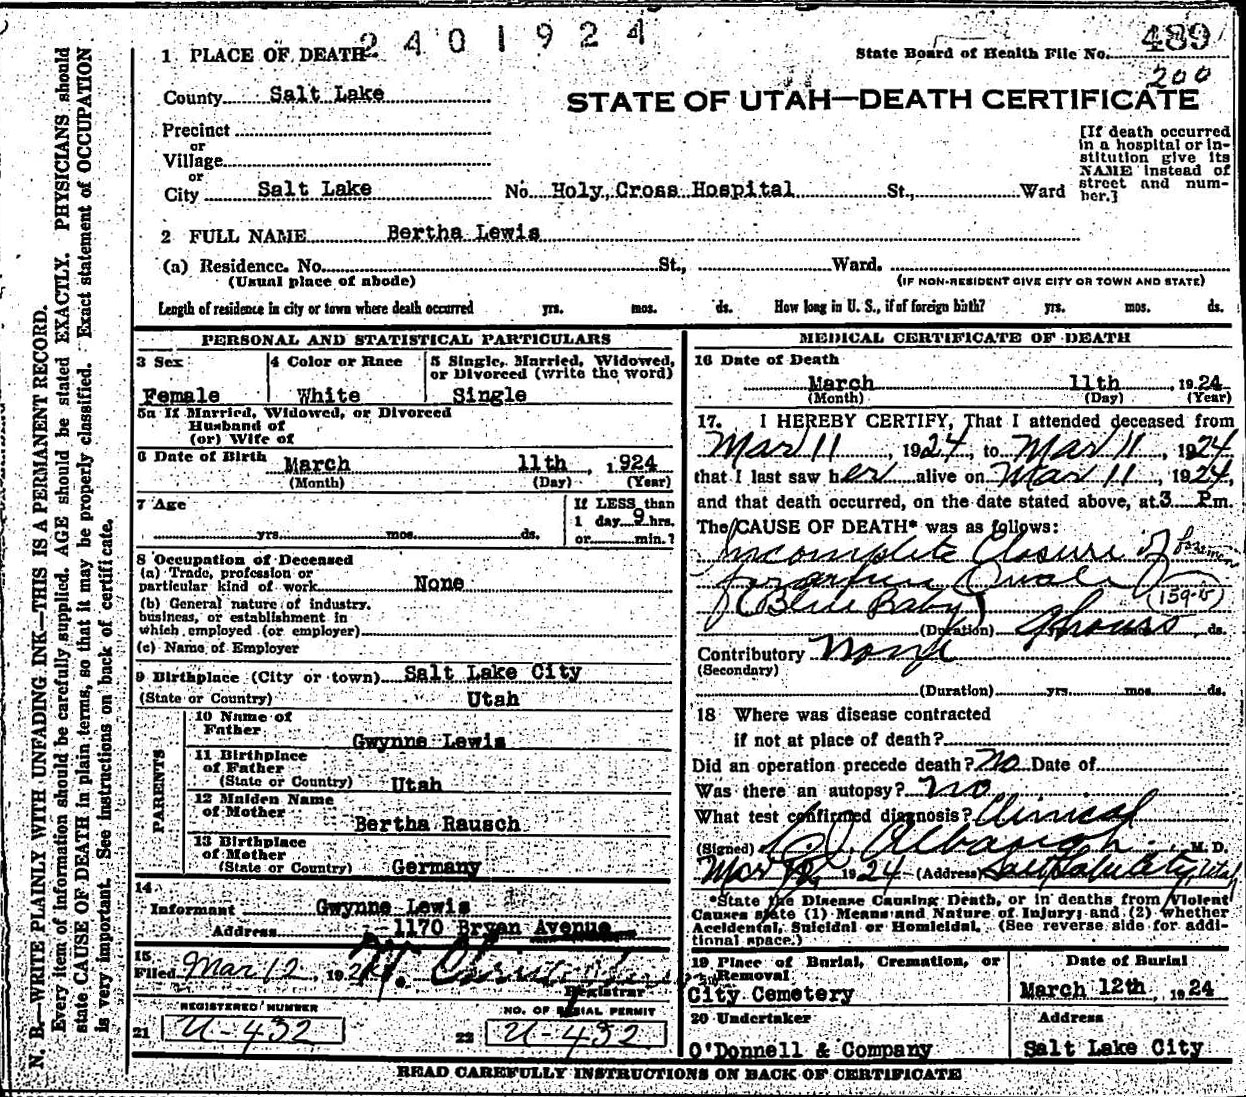 2401924
1 PLACE OF DEATH
State Board of Health File No. 489
200
County Salt Lake
STATE OF UTAH—DEATH CERTIFICATE
Precinct
or
Village
or
City Salt Lake No. Holy Cross Hospital St., Ward
[If death occurred
in a hospital or in-
stitution give its
NAME instead of
street and num-
ber.]
2 FULL NAME Bertha Lewis
(a) Residence. No. St., Ward.
(Usual place of abode) (IF NON-RESIDENT GIVE CITY OR TOWN AND STATE)
Length of residence in city or town where death occurred yrs. mos. ds. How long in U. S., if of foreign birth? yrs. mos. ds.
PERSONAL AND STATISTICAL PARTICULARS
3 Sex
Female
4 Color or Race
White
5 Single, Married, Widowed,
or Divorced (write the word)
Single
5a If Married, Widowed, or Divorced
Husband of
(or) Wife of
6 Date of Birth March 11th, 1924
(Month) (Day) (Year)
7 Age
yrs. mos. ds.
If LESS than
1 day 9 hrs.
or min.?
8 Occupation of Deceased
(a) Trade, profession or
particular kind of work None
(b) General nature of industry,
business, or establishment in
which employed (or employer)
(c) Name of Employer
9 Birthplace (City or town) Salt Lake City
(State or Country) Utah
PARENTS
10 Name of
Father
Gwynne Lewis
11 Birthplace
of Father
(State or Country) Utah
12 Maiden Name
of Mother
Bertha Rausch
13 Birthplace
of Mother
(State or Country) Germany
14
Informant Gwynne Lewis
Address 1170 Bryan Avenue
15
Filed Mar 12, 192
Registrar
REGISTERED NUMBER
21 U-432
NO. OF BURIAL PERMIT
22 U-432
MEDICAL CERTIFICATE OF DEATH
16 Date of Death
March 11th, 1924
(Month) (Day) (Year)
17. I HEREBY CERTIFY, That I attended deceased from
Mar 11, 1924, to Mar 11, 1924,
that I last saw her alive on Mar 11, 1924,
and that death occurred, on the date stated above, at 3 P.m.
The CAUSE OF DEATH* was as follows:
Incomplete Closure of
Ovale
(Blue Baby) (159-15)
(Duration) 9 hours ds.
Contributory None
(Secondary)
(Duration) yrs. mos. ds.
18 Where was disease contracted
if not at place of death?
Did an operation precede death? No Date of
Was there an autopsy? No
What test confirmed diagnosis? Clinical
(Signed) Albaugh M. D.
Mar 12, 1924 (Address) Salt Lake City, Utah
*State the Disease Causing Death, or in deaths from Violent
Causes state (1) Means and Nature of Injury; and (2) whether
Accidental, Suicidal or Homicidal. (See reverse side for addi-
tional space.)
19 Place of Burial, Cremation, or
Removal
City Cemetery
Date of Burial
March 12th, 1924
20 Undertaker
O'Donnell & Company
Address
Salt Lake City
READ CAREFULLY INSTRUCTIONS ON BACK OF CERTIFICATE
N. B.—WRITE PLAINLY WITH UNFADING INK—THIS IS A PERMANENT RECORD.
Every item of information should be carefully supplied. AGE should be stated EXACTLY. PHYSICIANS should
state CAUSE OF DEATH in plain terms, so that it may be properly classified. Exact statement of OCCUPATION
is very important. See instructions on back of certificate.